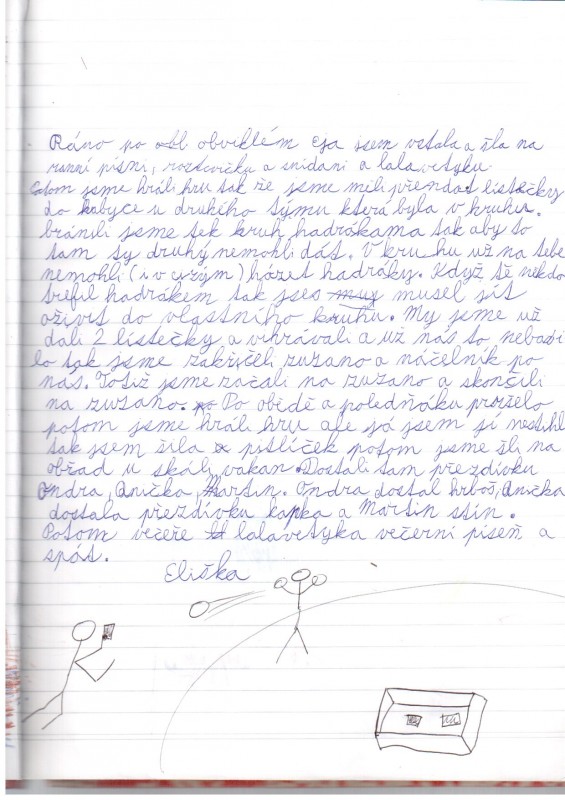 Ráno po obviklém cja jsem vstala a šla na
ranní písni, rozcvičku a snídani a lalavetyku.
Potom jsme hráli hru tak že jsme měli přendat lístečky
do krabyce u druhého týmu která byla v kruhu.
bránili jsme tek kruh hadrákama tak aby to
tam ty druhý nemohli dát. V kruhu už na tebe
nemohli (i v cyzým) házet hadráky. Když tě někdo
trefil hadrákem tak jses musel jít
oživit do vlastního kruhu. My jsme už
dali 2 lístečky a vihrávali a už nás to nebavi
lo tak jsme zakřičeli zuzano a náčelník po
nás. Totiž jsme začali na zuzano a skončili
na zuzano. Po obědě a poledňáku pršelo
potom jsme hráli hru ale já jsem jí nestihl
tak jsem šila pitlíček potom jsme šli na
obřad u skáli vakan. Dostali tam přezdívku
Ondra, Anička, Martin. Ondra dostal hrboš, Anička
dostala přezdívku kapka a Martin stín.
Potom večeře lalavetyka večerní píseň a
spát.
Eliška